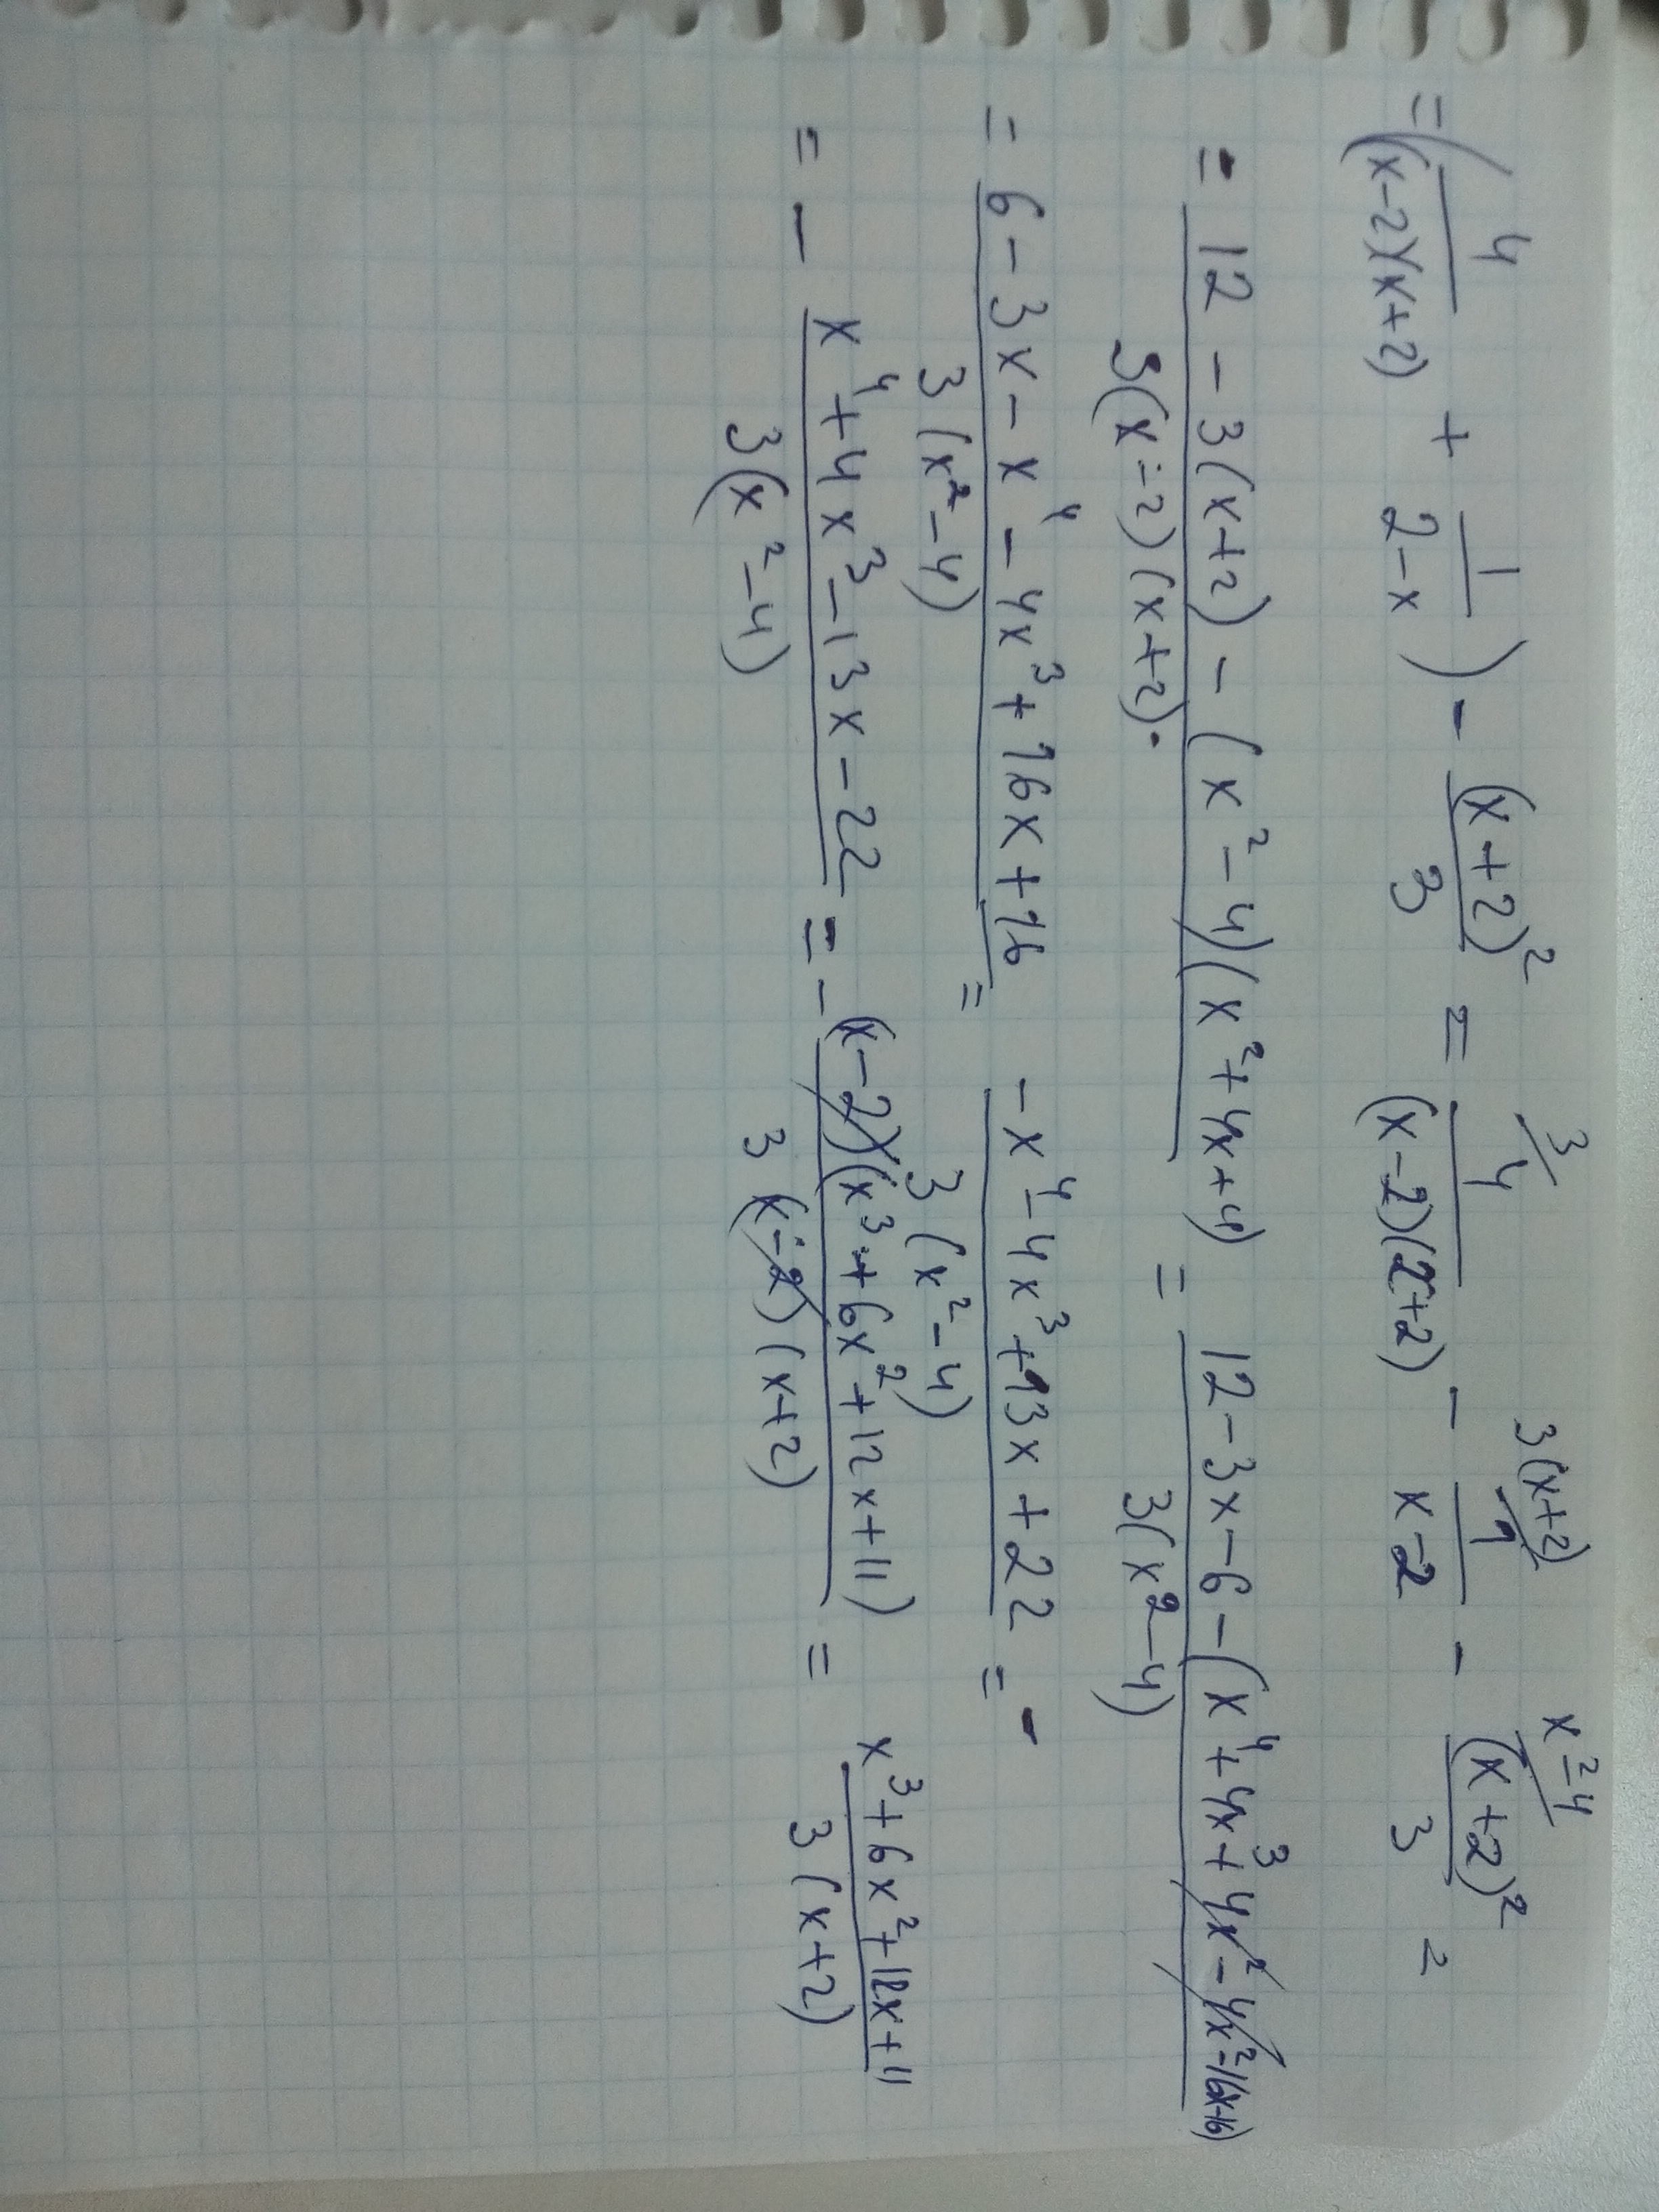 = ( 4/((x-2)(x+2)) + 1/(2-x) ) - (x+2)²/3 = 3/ 4/((x-2)(2+2)) - 3(x+2)/ 1/(x-2) - x²-4/ (x+2)²/3 =
= (12 - 3(x+2) - (x²-4)(x²+4x+4))/(3(x-2)(x+2)·) = (12-3x-6-(x⁴+4x³+4x²-4x²-16x-16))/(3(x²-4))
= (6-3x-x⁴-4x³+16x+16)/(3(x²-4)) = (-x⁴-4x³+13x+22)/(3(x²-4)) = -
= - (x⁴+4x³-13x-22)/(3(x²-4)) = - ((x-2)(x³+6x²+12x+11))/(3(x-2)(x+2)) = (x³+6x²+12x+11)/(3(x+2))